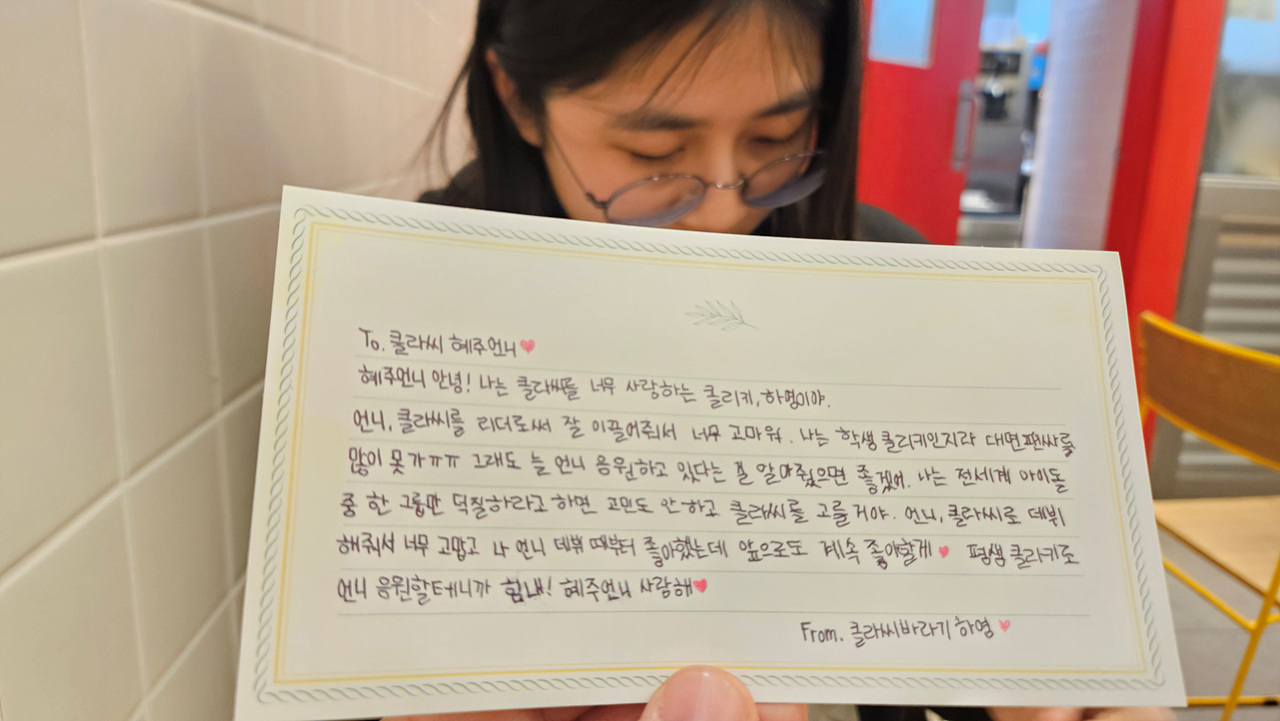 To. 클라씨 혜주언니♥
혜주언니 안녕! 나는 클라씨를 너무 사랑하는 클리키, 하영이야.
언니, 클라씨를 리더로써 잘 이끌어줘서 너무 고마워. 나는 학생 클리키인지라 대면팬싸를
많이 못가ㅠㅠ 그래도 늘 언니 응원하고 있다는 걸 알아줬으면 좋겠어. 나는 전세계 아이돌
중 한 그룹만 덕질하라고 하면 고민도 안하고 클라씨를 고를거야. 언니, 클라씨로 데뷔
해줘서 너무 고맙고 나 언니 데뷔 때부터 좋아했는데 앞으로도 계속 좋아할게♥ 평생 클리키로
언니 응원할테니까 힘내! 혜주언니 사랑해♥
From. 클라씨바라기 하영♥